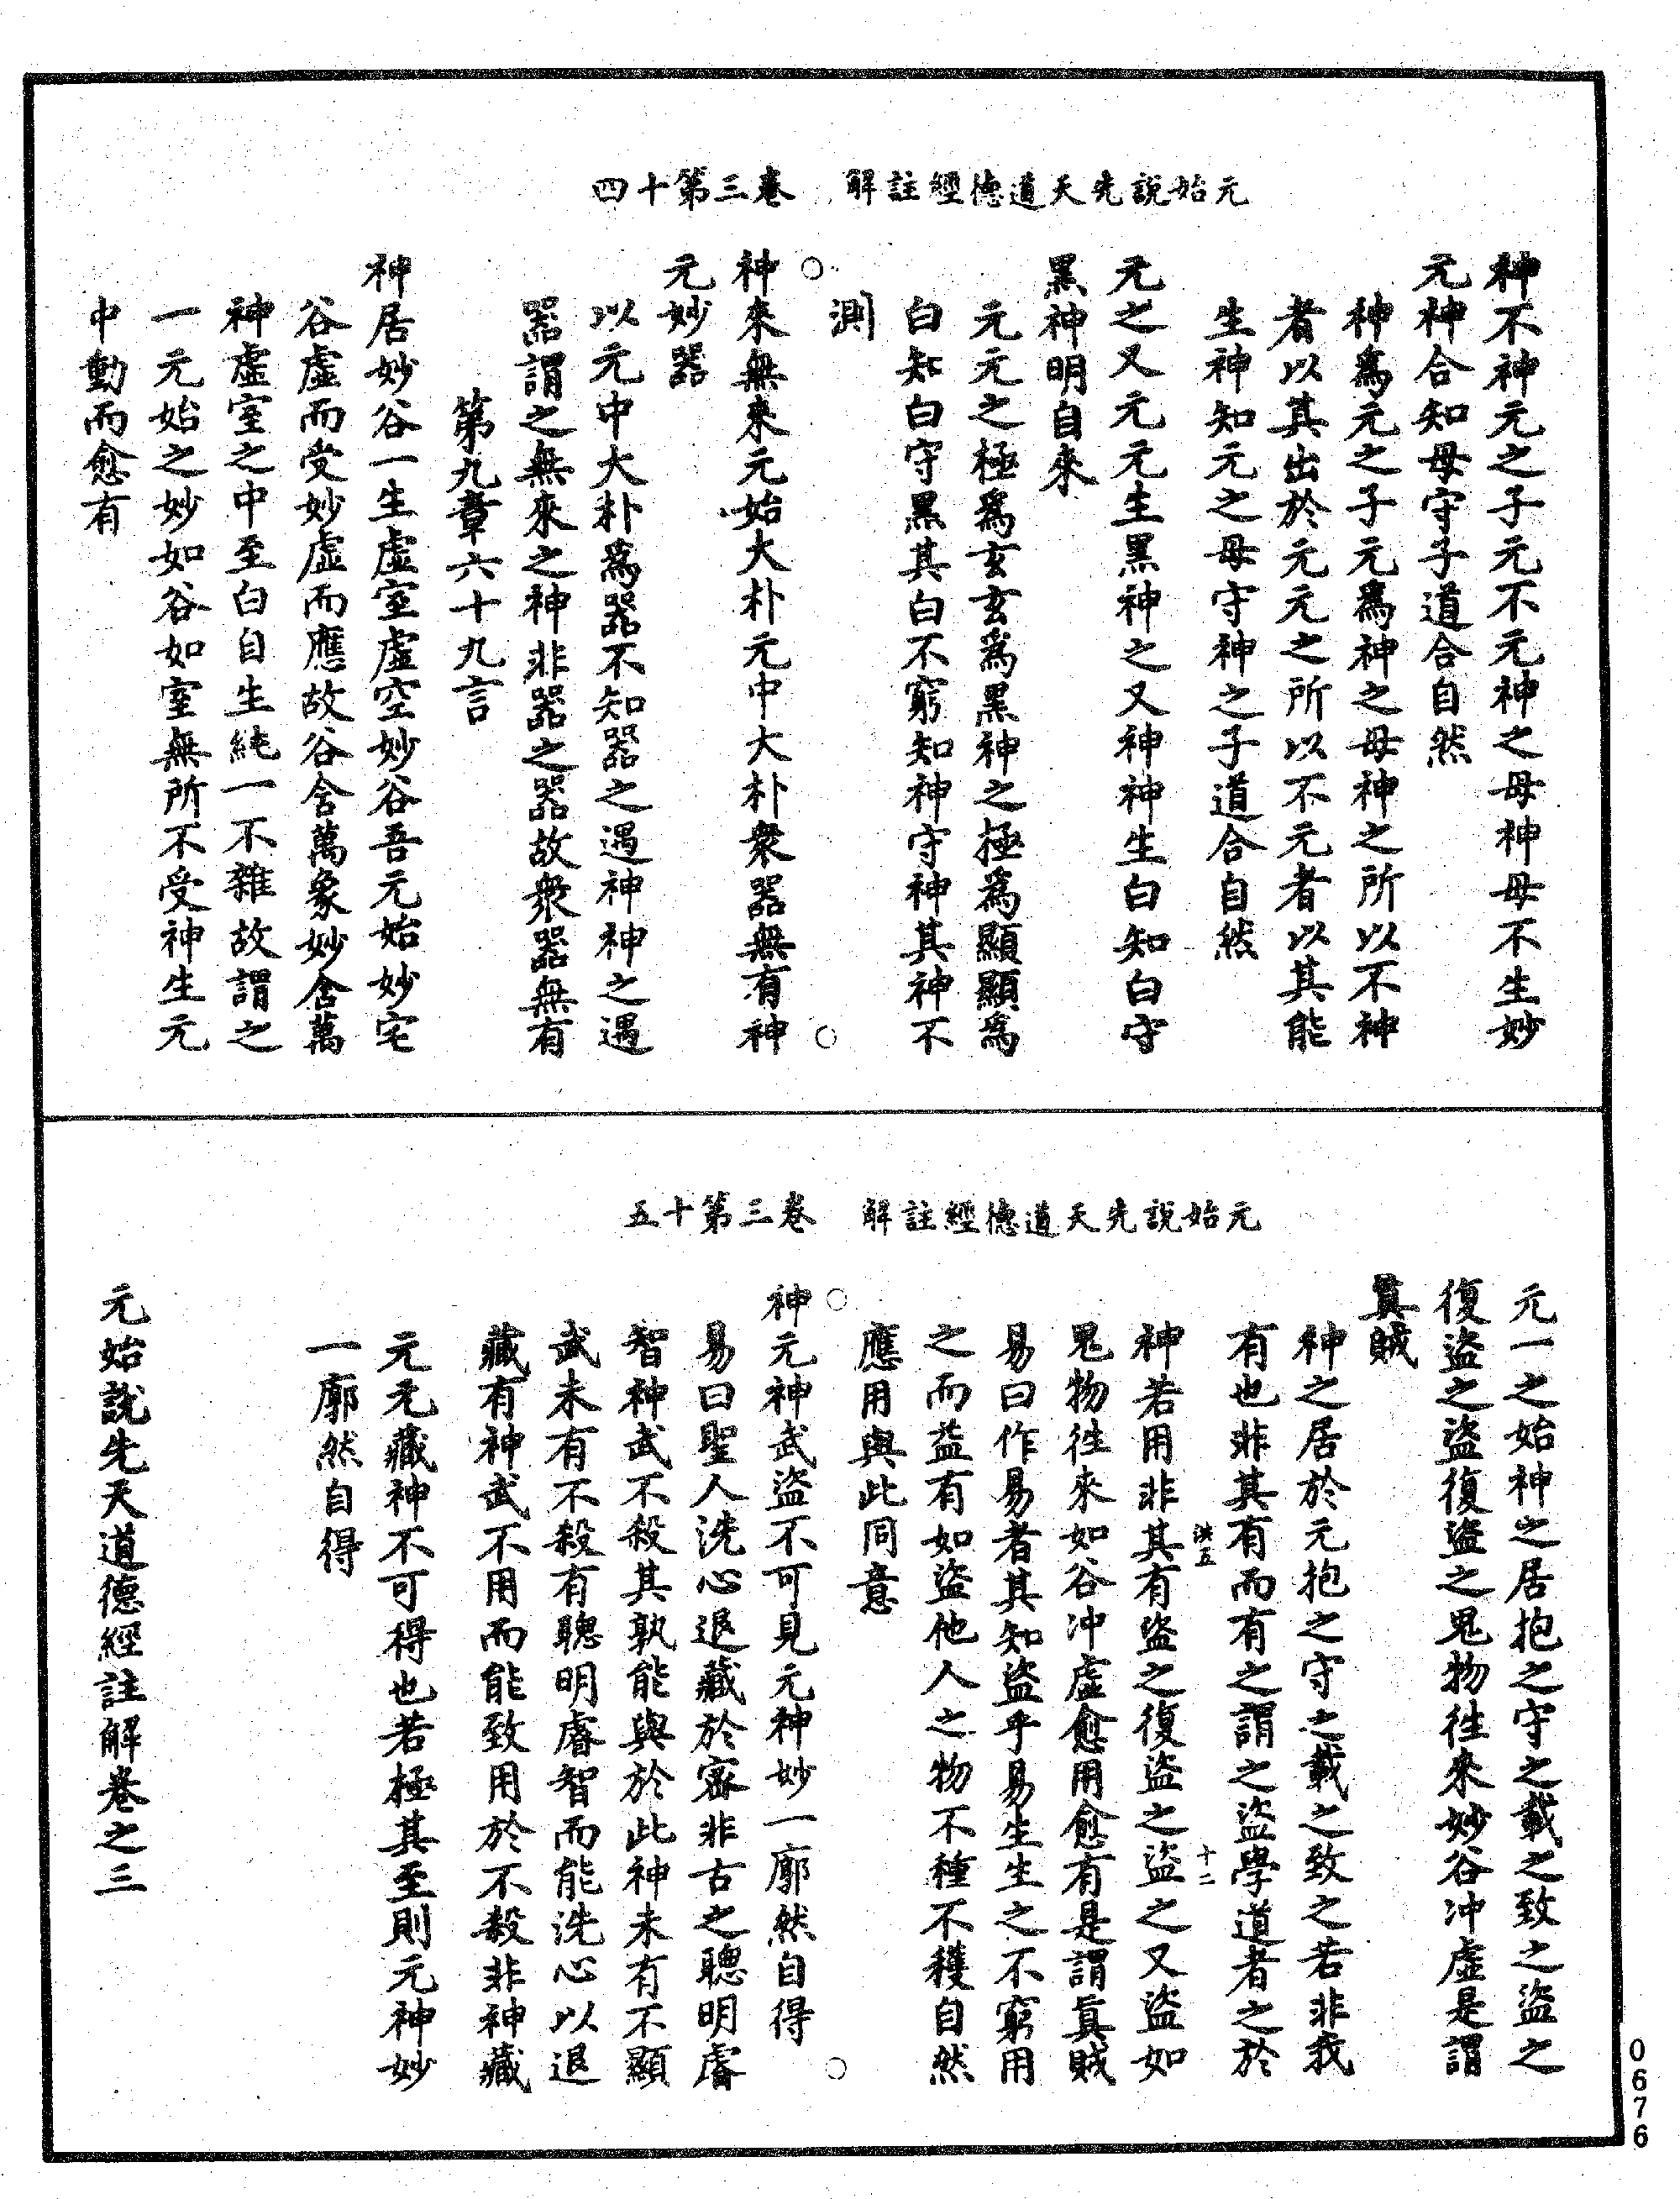 元始說先天道德經註解　卷三第十四
神不神元之子元不元神之母神母不生妙
元神合知母守子道合自然
神爲元之子元爲神之母神之所以不神
者以其出於元元之所以不元者以其能
生神知元之母守神之子道合自然
元之又元元生黑神之又神神生白知白守
黑神明自來
元元之極爲玄玄爲黑神之極爲顯顯爲
白知白守黑其白不窮知神守神其神不
測
○　○
神來無來元始大朴元中大朴衆器無有神
元妙器
以元中大朴爲器不知器之遇神神之遇
器謂之無來之神非器之器故衆器無有
第九章六十九言
神居妙谷一生虛室虛空妙谷吾元始妙宅
谷虛而受妙虛而應故谷含萬象妙含萬
神虛室之中至白自生純一不雜故謂之
一元始之妙如谷如室無所不受神生元
中動而愈有
元始說先天道德經註解　卷三第十五
元一之始神之居抱之守之載之致之盜之
復盜之盜復盜之鬼物往來妙谷冲虛是謂
眞賊
神之居於元抱之守之載之致之若非我
有也非其有而有之謂之盜學道者之於
洪五　十二
神若用非其有盜之復盜之盜之又盜如
鬼物往來如谷冲虛愈用愈有是謂眞賊
易曰作易者其知盜乎易生生之不窮用
之而益有如盜他人之物不種不穫自然
應用與此同意
○　○
神元神武盜不可見元神妙一廓然自得
易曰聖人洗心退藏於密非古之聰明睿
智神武不殺其孰能與於此神未有不顯
武未有不殺有聰明睿智而能洗心以退
藏有神武不用而能致用於不殺非神藏
元元藏神不可得也若極其至則元神妙
一廓然自得
元始說先天道德經註解卷之三
0676